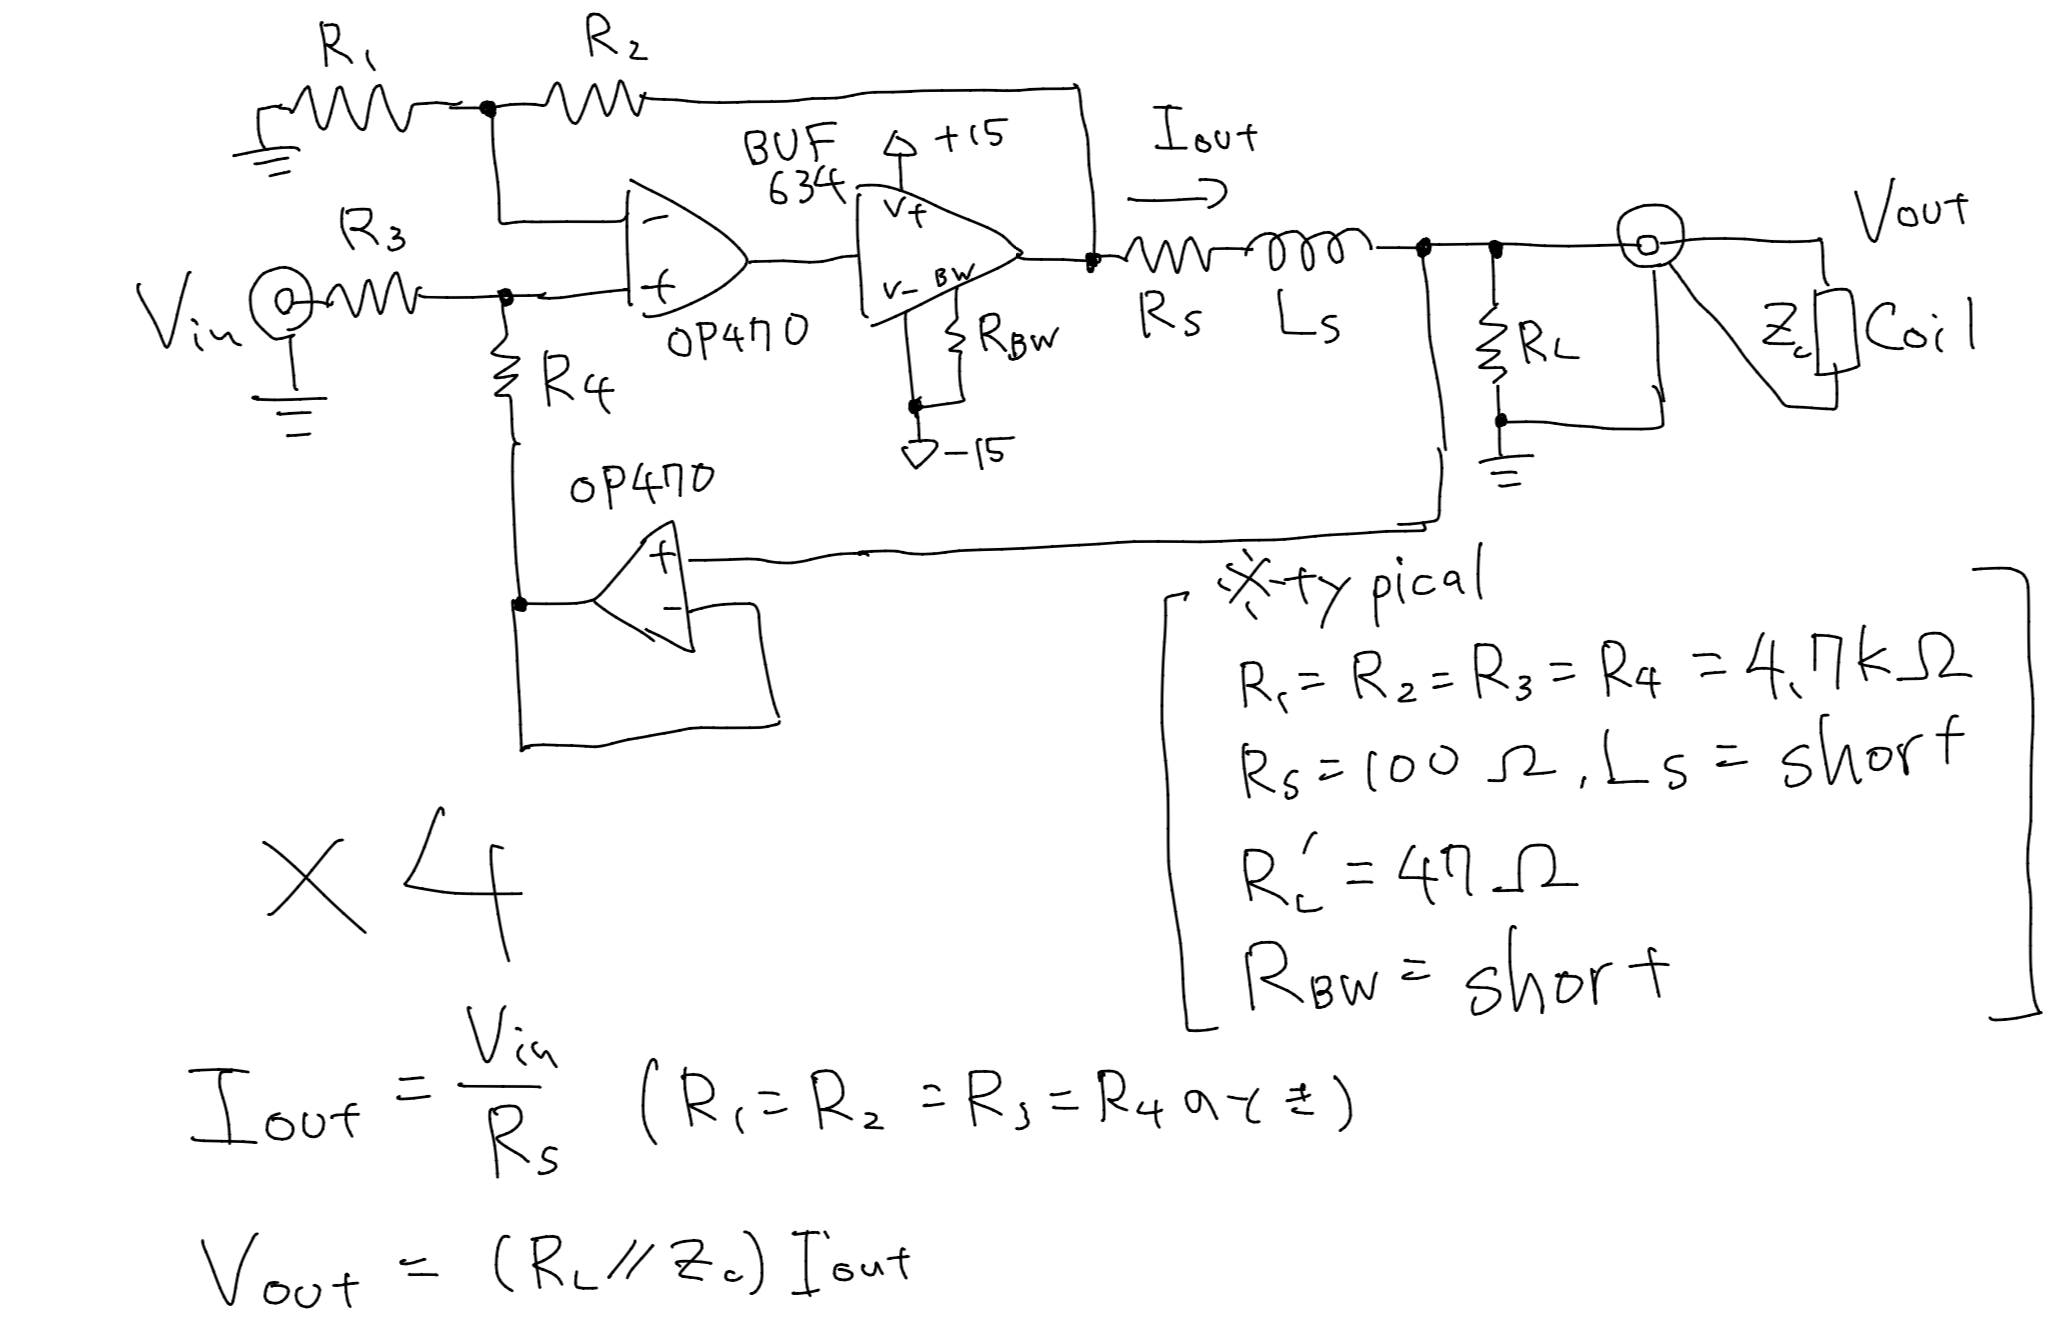 R₁
R₂
BUF
634
+15
Iout
Vout
R₃
Vin
-
+
OP470
V+
V-
BW
RBW
-15
Rs
Ls
RL
Zc
Coil
R₄
OP470
+
-
※typical
R₁=R₂=R₃=R₄=4.7kΩ
Rs=100Ω, Ls=short
RL'=47Ω
RBW=short
×4
Iout = Vin/Rs (R₁=R₂=R₃=R₄のとき)
Vout = (RL//Zc) Iout